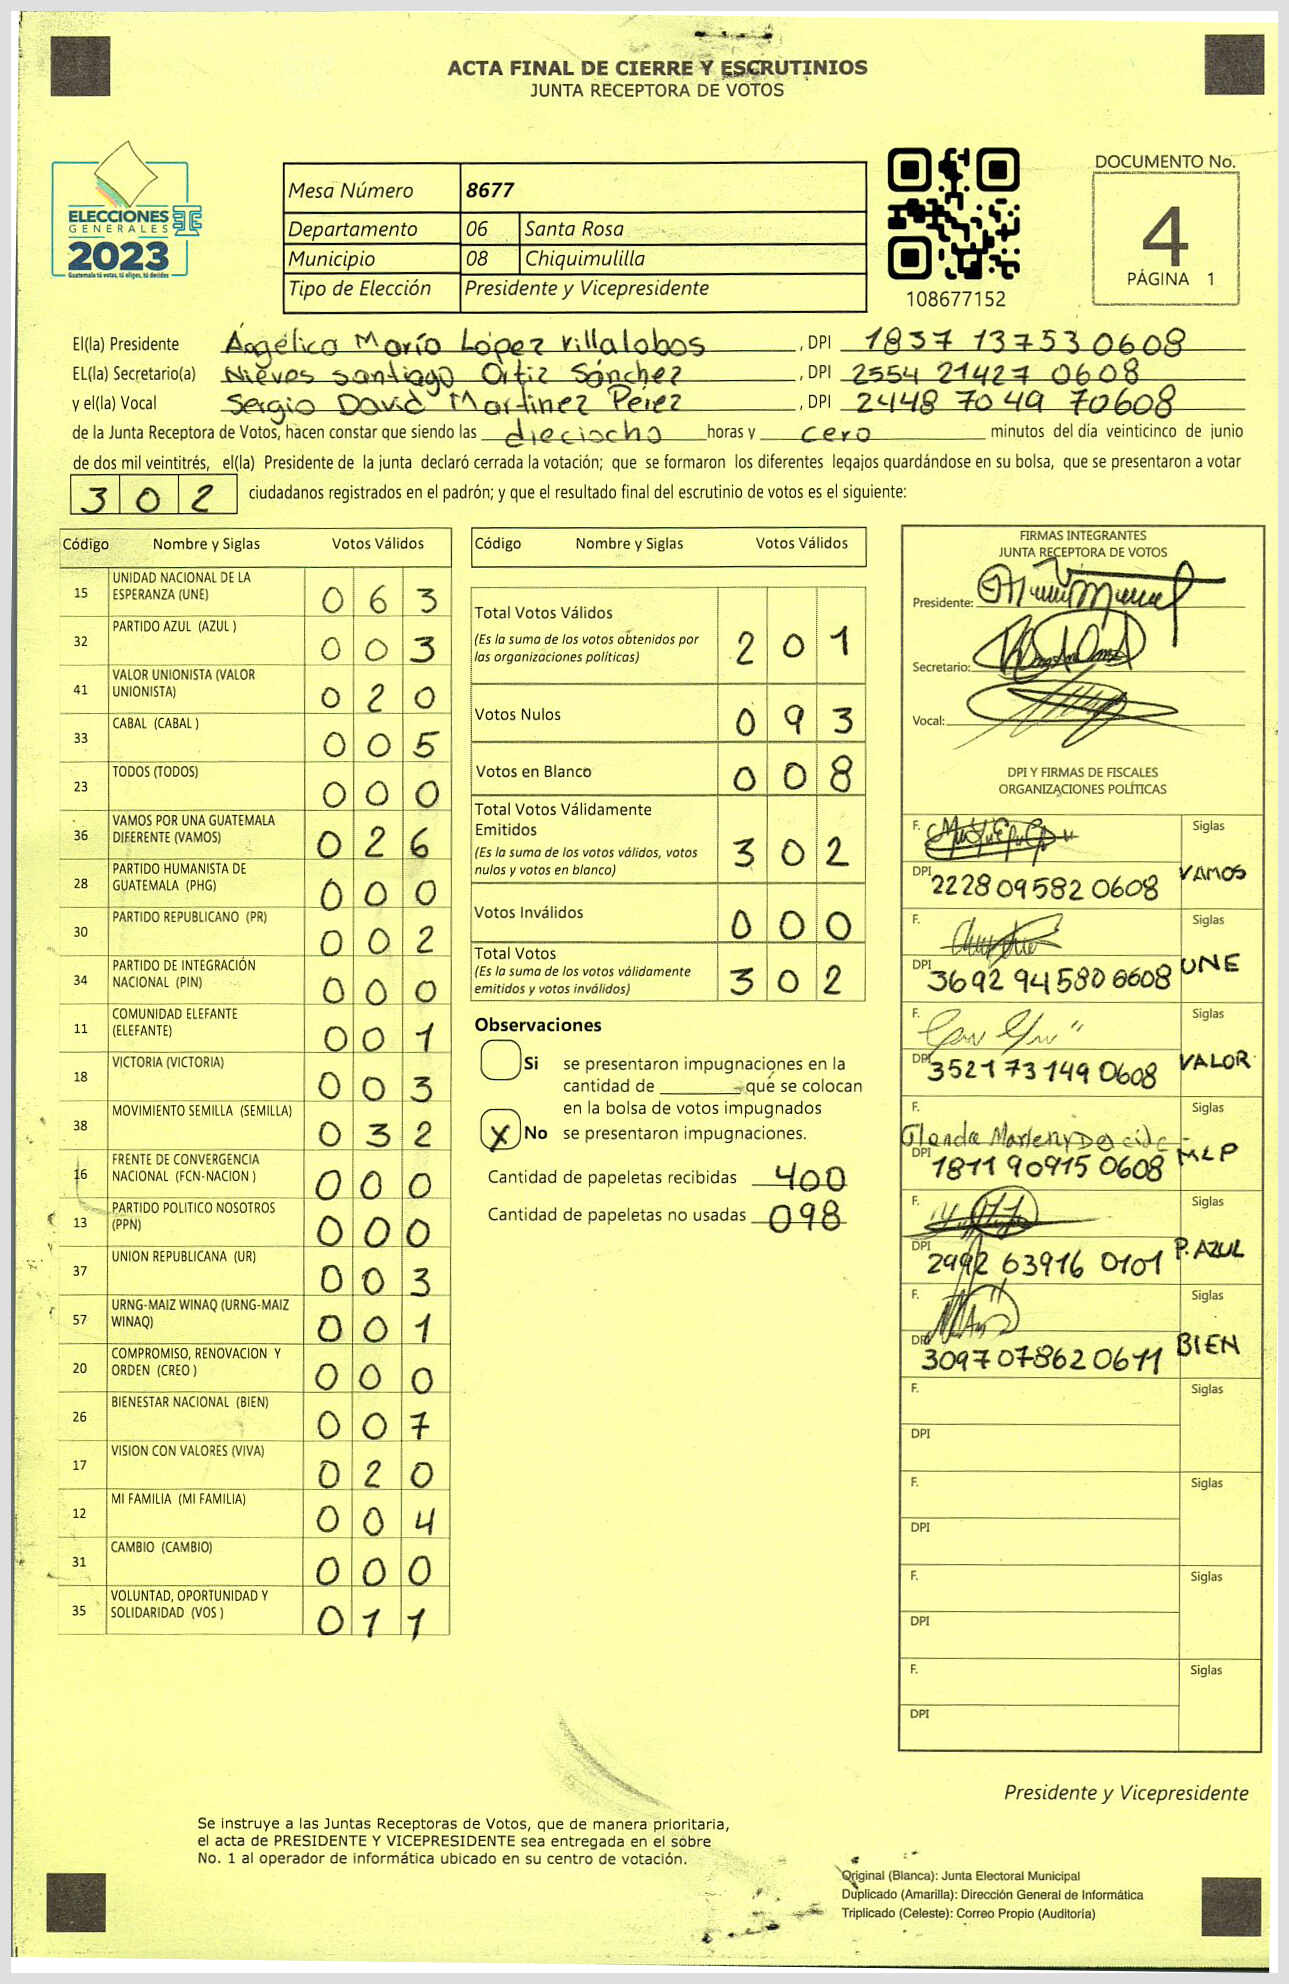 ACTA FINAL DE CIERRE Y ESCRUTINIOS
JUNTA RECEPTORA DE VOTOS
ELECCIONES
GENERALES
2023
Guatemala tú votas, tú eliges, tú decides
Mesa Número 8677
Departamento 06 Santa Rosa
Municipio 08 Chiquimulilla
Tipo de Elección Presidente y Vicepresidente
108677152
DOCUMENTO No.
4
PÁGINA 1
El(la) Presidente Angélica María López Villalobos , DPI 1837 13753 0608
EL(la) Secretario(a) Nieves santiago Ortiz Sánchez , DPI 2554 21427 0608
y el(la) Vocal Sergio David Martinez Pérez , DPI 2448 7049 70608
de la Junta Receptora de Votos, hacen constar que siendo las dieciocho horas y cero minutos del día veinticinco de junio
de dos mil veintitrés, el(la) Presidente de la junta declaró cerrada la votación; que se formaron los diferentes legajos guardándose en su bolsa, que se presentaron a votar
302 ciudadanos registrados en el padrón; y que el resultado final del escrutinio de votos es el siguiente:
Código Nombre y Siglas Votos Válidos
15 UNIDAD NACIONAL DE LA ESPERANZA (UNE) 063
32 PARTIDO AZUL (AZUL ) 003
41 VALOR UNIONISTA (VALOR UNIONISTA) 020
33 CABAL (CABAL ) 005
23 TODOS (TODOS) 000
36 VAMOS POR UNA GUATEMALA DIFERENTE (VAMOS) 026
28 PARTIDO HUMANISTA DE GUATEMALA (PHG) 000
30 PARTIDO REPUBLICANO (PR) 002
34 PARTIDO DE INTEGRACIÓN NACIONAL (PIN) 000
11 COMUNIDAD ELEFANTE (ELEFANTE) 001
18 VICTORIA (VICTORIA) 003
38 MOVIMIENTO SEMILLA (SEMILLA) 032
16 FRENTE DE CONVERGENCIA NACIONAL (FCN-NACION ) 000
13 PARTIDO POLITICO NOSOTROS (PPN) 000
37 UNION REPUBLICANA (UR) 003
57 URNG-MAIZ WINAQ (URNG-MAIZ WINAQ) 001
20 COMPROMISO, RENOVACION Y ORDEN (CREO ) 000
26 BIENESTAR NACIONAL (BIEN) 007
17 VISION CON VALORES (VIVA) 020
12 MI FAMILIA (MI FAMILIA) 004
31 CAMBIO (CAMBIO) 000
35 VOLUNTAD, OPORTUNIDAD Y SOLIDARIDAD (VOS ) 011
Código Nombre y Siglas Votos Válidos
Total Votos Válidos 201
(Es la suma de los votos obtenidos por
las organizaciones políticas)
Votos Nulos 093
Votos en Blanco 008
Total Votos Válidamente
Emitidos 302
(Es la suma de los votos válidos, votos
nulos y votos en blanco)
Votos Inválidos 000
Total Votos 302
(Es la suma de los votos válidamente
emitidos y votos inválidos)
Observaciones
Si se presentaron impugnaciones en la
cantidad de ________ que se colocan
en la bolsa de votos impugnados
X No se presentaron impugnaciones.
Cantidad de papeletas recibidas 400
Cantidad de papeletas no usadas 098
FIRMAS INTEGRANTES
JUNTA RECEPTORA DE VOTOS
Presidente:
Secretario:
Vocal:
DPI Y FIRMAS DE FISCALES
ORGANIZACIONES POLÍTICAS
F. Siglas
DPI 2228 09582 0608 VAMOS
F. Siglas
DPI 3692 94580 0608 UNE
F. Siglas
DPI 3521 73149 0608 VALOR
F. Siglas
Glenda Marleny
DPI 1811 90915 0608 MLP
F. Siglas
DPI 2992 63916 0101 P. AZUL
F. Siglas
DPI 3097 07862 0611 BIEN
F. Siglas
DPI
F. Siglas
DPI
F. Siglas
DPI
F. Siglas
DPI
Presidente y Vicepresidente
Se instruye a las Juntas Receptoras de Votos, que de manera prioritaria,
el acta de PRESIDENTE Y VICEPRESIDENTE sea entregada en el sobre
No. 1 al operador de informática ubicado en su centro de votación.
Original (Blanca): Junta Electoral Municipal
Duplicado (Amarilla): Dirección General de Informática
Triplicado (Celeste): Correo Propio (Auditoría)